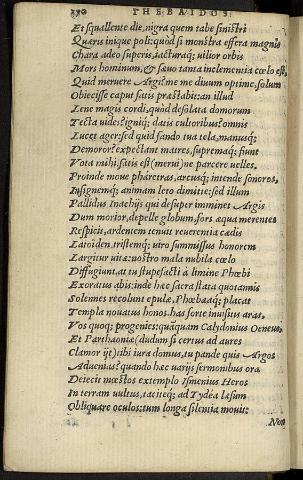 THEBAIDOS
Et squallente die, nigra quem tabe sinistri
Quæris inique poli: quòd si monstra effera magnis
Chara adeo superis, iacturaq; uilior orbis
Mors hominum, & sæuo tanta inclementia cœlo est,
Quid meruere Argi? me me diuum optime, solum
Obiecisse caput fatis præstabit: an illud
Lene magis cordi, quòd desolata domorum
Tecta uides? igniq; datis cultoribus omnis
Lucet ager: sed quid fando tua tela, manusq;
Demoror? expectant matres, supremaq; fiunt
Vota mihi, satis est (merui) ne parcere uelles.
Proinde moue pharetras, arcusq; intende sonoros,
Insignemq; animam leto dimitte: sed illum
Pallidus Inachijs qui desuper imminet Argis
Dum morior, depelle globum, fors æqua merentes
Respicit, ardentem tenuit reuerentia cædis
Latoiden, tristemq; uiro summissus honorem
Largitur uitæ: nostro mala nubila cœlo
Diffugiunt, at tu stupefacti à limine Phœbi
Exoratus abis: inde hæc sacra stata quotannis
Solemnes recolunt epulæ, Phœbæaq; placat
Templa nouatus honos. has forte inuisitis aras.
Vos quoq; progenies: quāquam Calydonius Oeneus,
Et Parthaoniæ (dudum si certus ad aures
Clamor ijt) tibi iura domus, tu pande quis Argos
Aduenias? quando hæc uarijs sermonibus ora
Deiecit mœstos extemplo Ismenius Heros
In terram uultus, taciteq; ad Tydea læsum
Obliquare oculos: tum longa silentia mouit:
Non